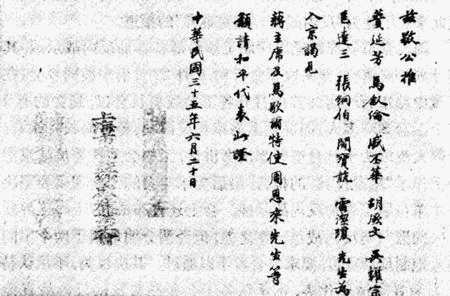 茲敬公推
蕢延芳 馬敘倫 盛丕華 胡厥文 吳耀宗
包達三 張絅伯 閻寶航 雷潔瓊 先生為
入京謁見
蔣主席及馬歇爾特使周恩來先生等
籲請和平代表此證
中華民國三十五年六月二十日